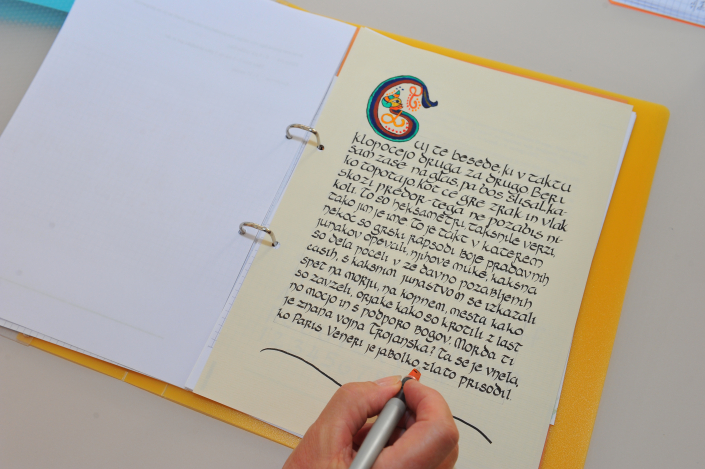 Čuj te besede, ki v taktu
klopočejo druga za drugo. Beri
sam zase na glas, pa boš slišal, ka-
ko topotajo, kot če gre zrak in vlak
skozi predor - tega ne pozabiš ni-
koli. To so heksametri, takšnile verzi,
tako jim je ime. To je takt v katerem
nekoč so grški rapsodi boje pradavnih
junakov opevali, njihove muke, kakšna
so dela počeli v že davno pozabljenih
časih, s kakšnim junaštvom in se izkazali
spet na morju, na kopnem, mesta kako
so zavzeli, orjake kako so krotili z last
no močjo in s podporo bogov. Morda ti
je znana vojna Trojanska? Ta se je vnela,
ko Paris Veneri je jabolko zlato prisodil.